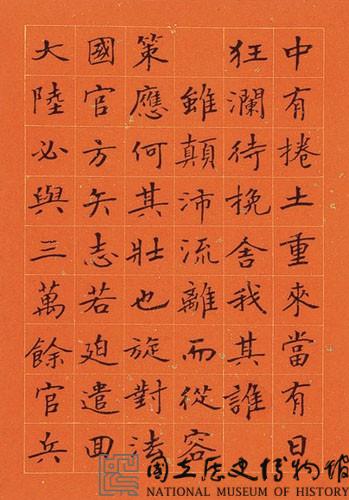 中有捲土重來當有日
狂瀾待挽舍我其誰
雖顛沛流離而從容
策應何其壯也旋對法
國官方矢志若廹遣回
大陸必與三萬餘官兵
國立歷史博物館
NATIONAL MUSEUM OF HISTORY